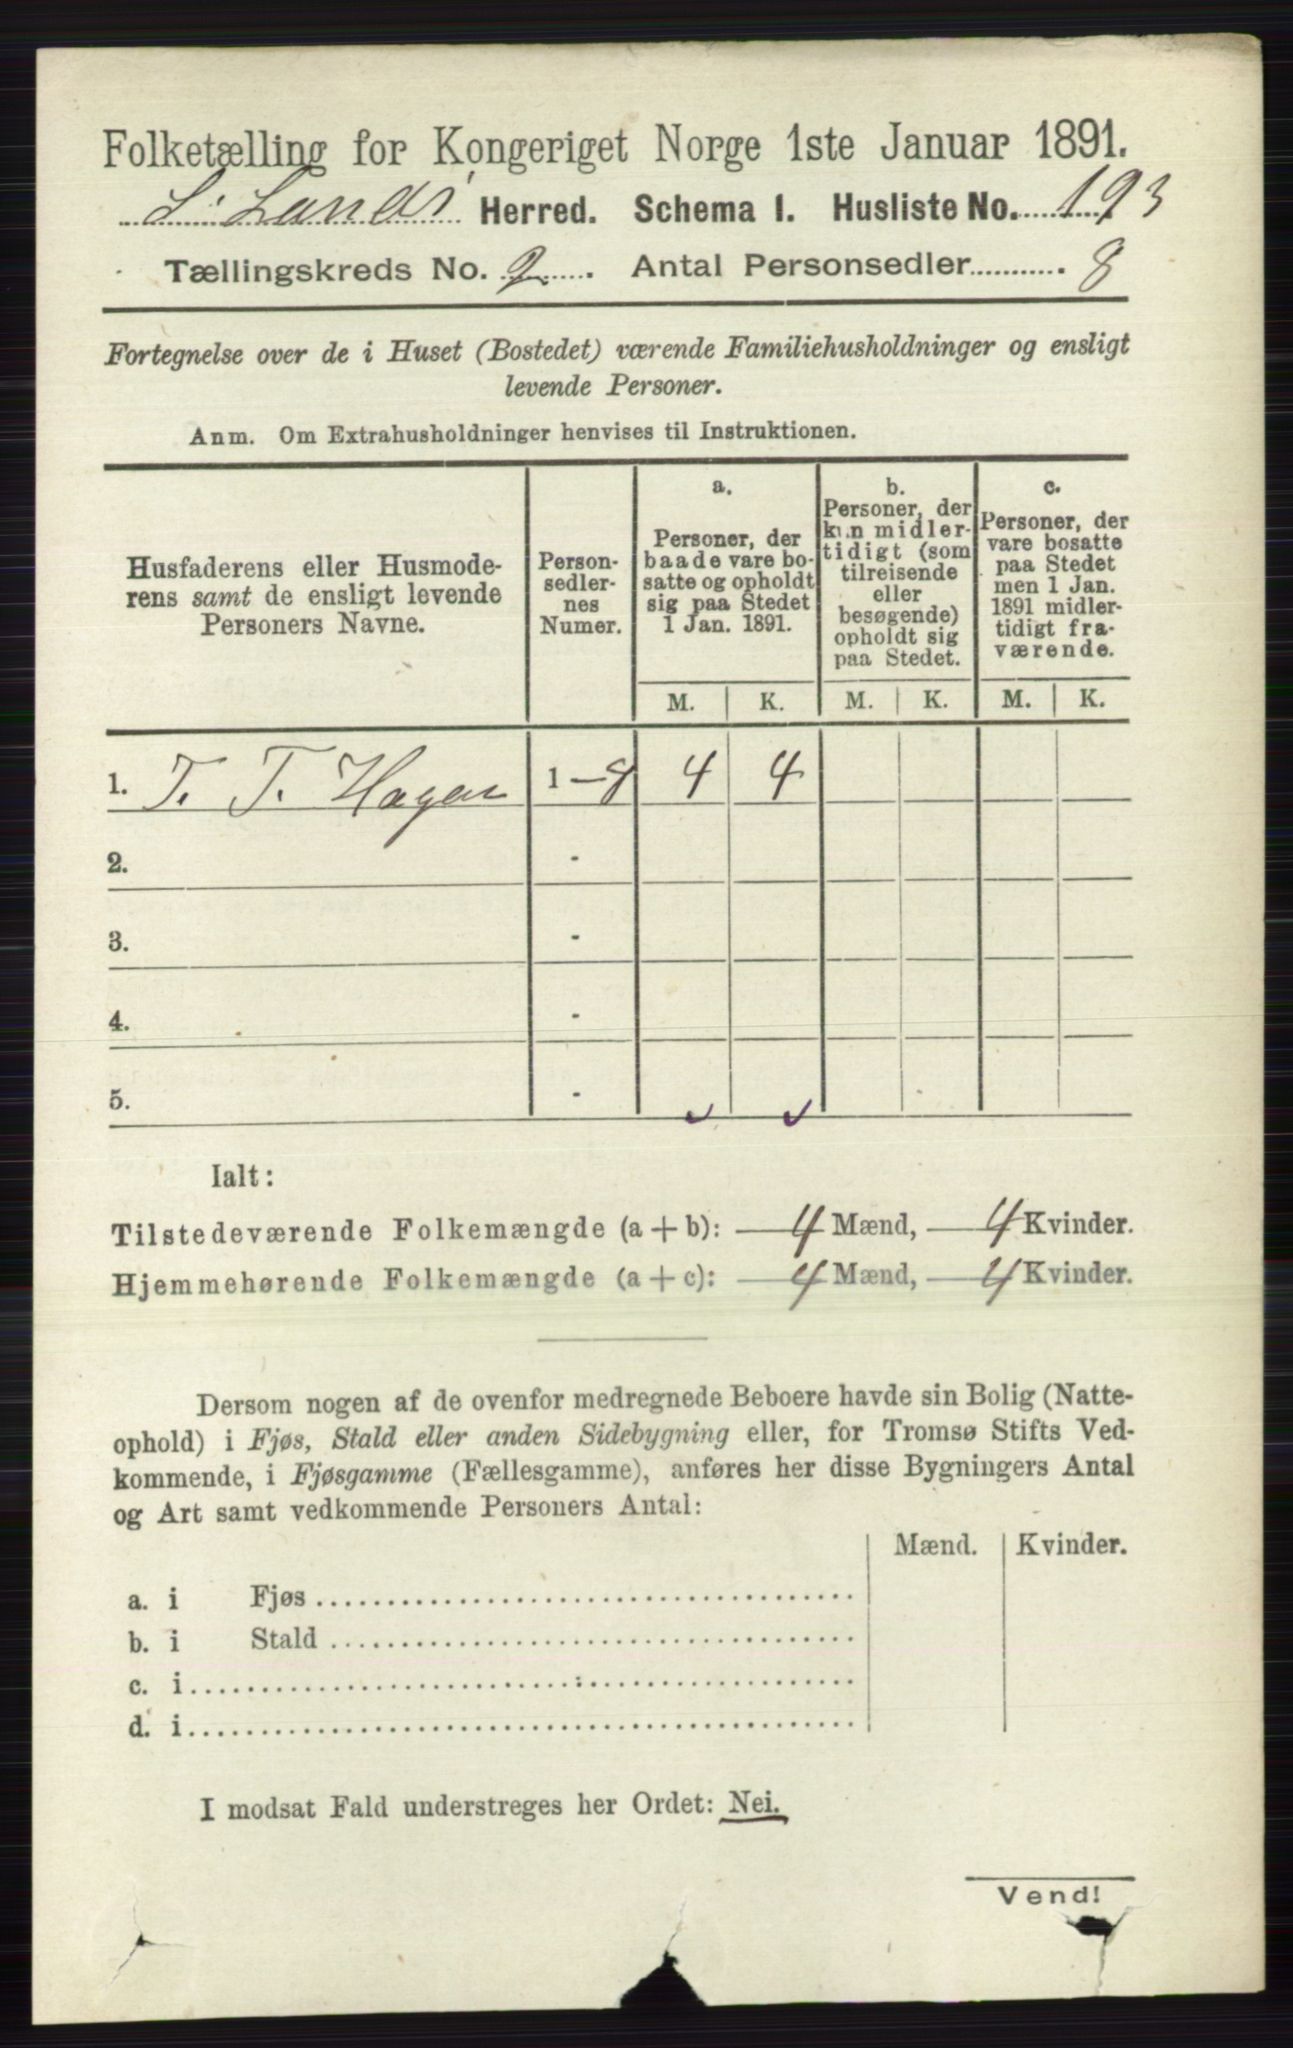 Folketælling for Kongeriget Norge 1ste Januar 1891.
S. Lands Herred. Schema 1. Husliste No. 193
Tællingskreds No. 2. Antal Personsedler 8
Fortegnelse over de i Huset (Bostedet) værende Familiehusholdninger og ensligt
levende Personer.
Anm. Om Extrahusholdninger henvises til Instruktionen.
Husfaderens eller Husmode-
rens samt de ensligt levende
Personers Navne.
Person-
sedler-
nes
Numer.
a.
Personer, der
baade vare bo-
satte og opholdt
sig paa Stedet
1 Jan. 1891.
b.
Personer, der
kun midler-
tidigt (som
tilreisende
eller
besøgende)
opholdt sig
paa Stedet.
c.
Personer, der
vare bosatte
paa Stedet
men 1 Jan.
1891 midler-
tidigt fra-
værende.
M. K. M. K. M. K.
1. T. T. Hagen 1-8 4 4
2. -
3. -
4. -
5. -
Ialt:
Tilstedeværende Folkemængde (a + b): 4 Mænd, 4 Kvinder.
Hjemmehørende Folkemængde (a + c): 4 Mænd, 4 Kvinder.
Dersom nogen af de ovenfor medregnede Beboere havde sin Bolig (Natte-
ophold) i Fjøs, Stald eller anden Sidebygning eller, for Tromsø Stifts Ved-
kommende, i Fjøsgamme (Fællesgamme), anføres her disse Bygningers Antal
og Art samt vedkommende Personers Antal:
Mænd. Kvinder.
a. i Fjøs
b. i Stald
c. i
d. i
I modsat Fald understreges her Ordet: Nei.
Vend!